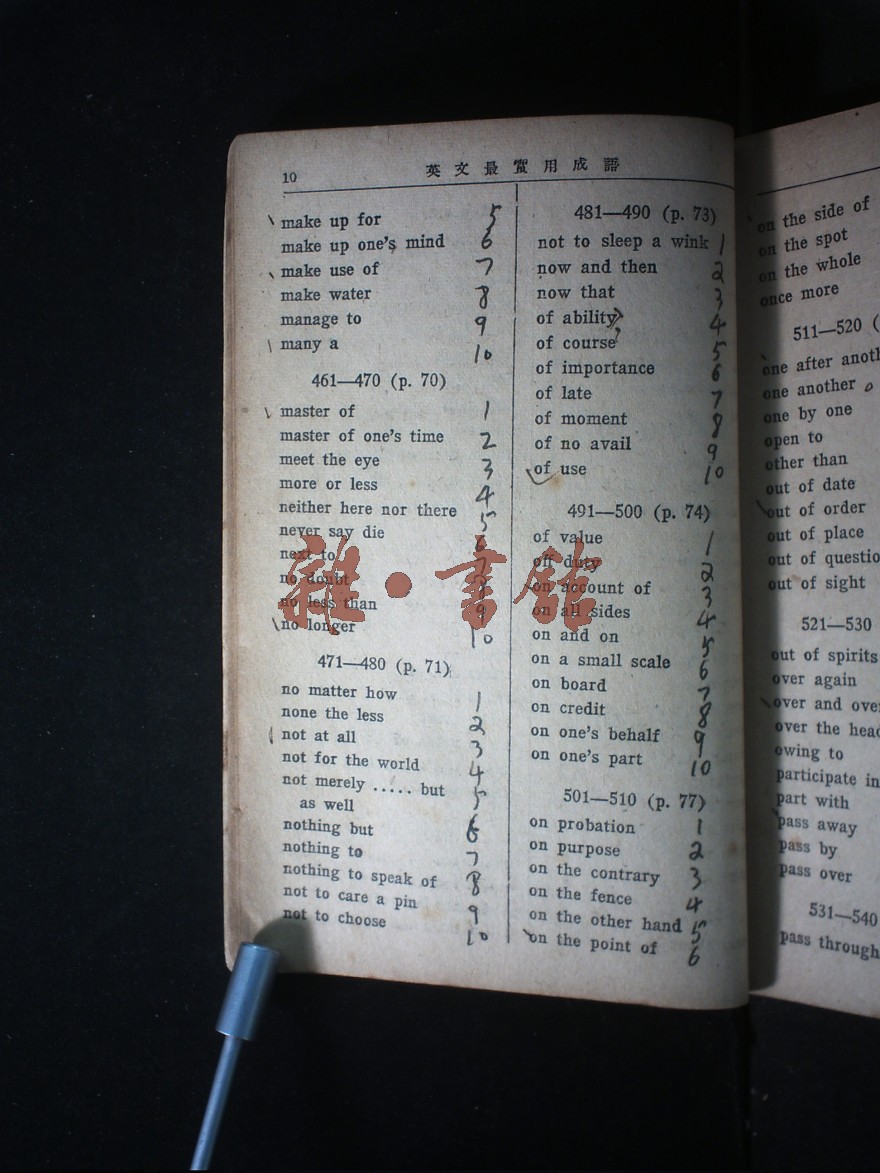 10
英文最實用成語
make up for 5
make up one's mind 6
make use of 7
make water 8
manage to 9
many a 10
461—470 (p. 70)
master of 1
master of one's time 2
meet the eye 3
more or less 4
neither here nor there 5
never say die 6
next to 7
no doubt 8
no less than 9
no longer 10
471—480 (p. 71)
no matter how 1
none the less 2
not at all 3
not for the world 4
not merely ..... but 5
as well
nothing but 6
nothing to 7
nothing to speak of 8
not to care a pin 9
not to choose 10
481—490 (p. 73)
not to sleep a wink 1
now and then 2
now that 3
of ability 4
of course 5
of importance 6
of late 7
of moment 8
of no avail 9
of use 10
491—500 (p. 74)
of value 1
off duty 2
on account of 3
on all sides 4
on and on 5
on a small scale 6
on board 7
on credit 8
on one's behalf 9
on one's part 10
501—510 (p. 77)
on probation 1
on purpose 2
on the contrary 3
on the fence 4
on the other hand 5
on the point of 6
on the side of
on the spot
on the whole
once more
511—520 (
one after anoth
one another
one by one
open to
other than
out of date
out of order
out of place
out of questio
out of sight
521—530
out of spirits
over again
over and over
over the head
owing to
participate in
part with
pass away
pass by
pass over
531—540
pass through
雜·書館